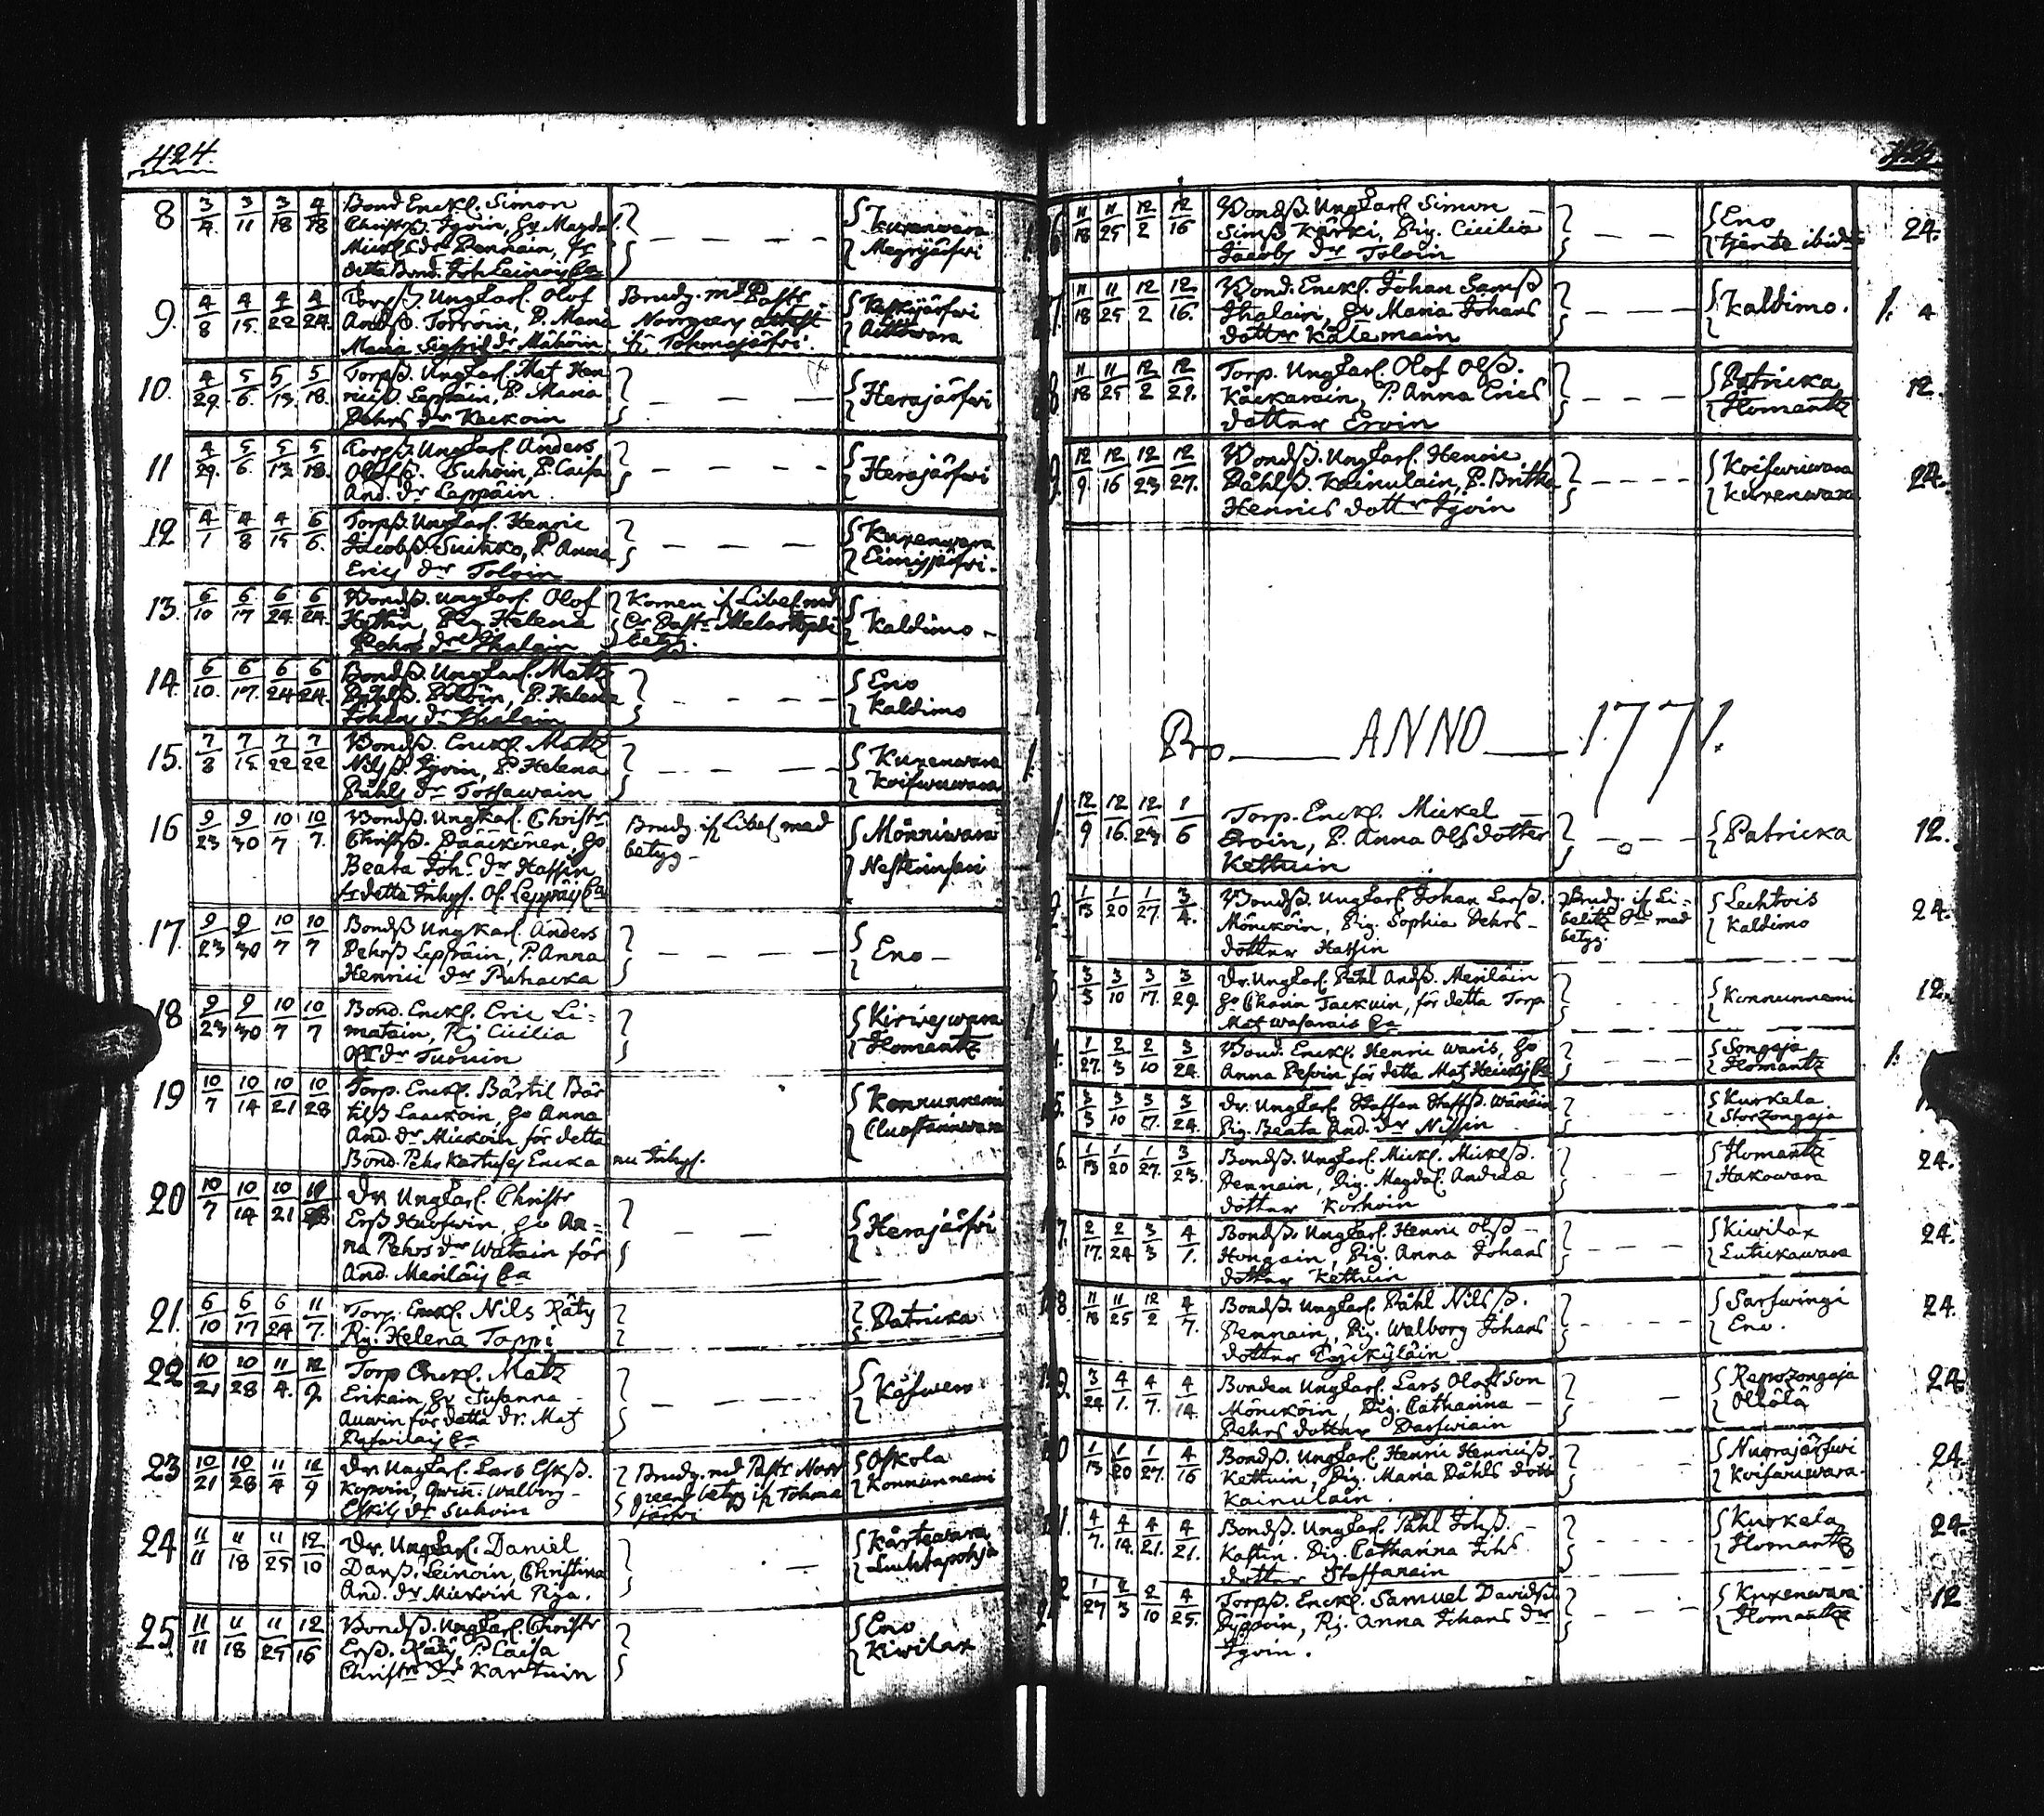 424.
8 3/4 3/11 3/18 4/18 Bond Enckl. Simon
Christ.ß. Igoin, Ea Magdal.
Mickels dr Pennain,
detta Bond. Joh Leinoij Ea
Kuxenwara
Megrijärfwi
9. 4/8 4/15. 4/22 4/24. Torpß. Ungkarl. Olof
Andß. Torroin, P. Maria
Maria Sigfrids dr Mähöin
Brudg. md Pastr
Norrgrens attest
if Tohmajärfwi.
Keskijärfwi
10. 4/29. 5/6. 5/13. 5/18. Torpß. Ungkarl. Mat Hen
rics. Leppäin, P. Maria
Pehrs dr Kackoin
Herajärfwi
11 4/29. 5/6. 5/13 5/18. Torpß. Ungkarl. Anders
Olofß. Puhoin, P. Caisa
And. dr Lappäin.
Herajärfwi
12 4/1 4/8 4/15 6/6. Torpß. Ungkarl. Henric
Jacobß. Suihko, P. Anna
Erics dr Toloin
Kuxenwara
Eimisjärfwi.
13. 6/10 6/17 6/24. 6/24. Bondß. Ungkarl. Olof
Hettin, Pig Helena
Pehrs dr Ihalain
Komen if Libel. md
Cr Pastr Melartopæi
betyg.
Kaldimo
14. 6/10. 6/17. 6/24 6/24. Bondß. Ungkarl. Matz
Påhlß. Poloin, P. Helena
Johans dr Ihalain
Eno
Kaldimo
15. 7/8 7/15. 7/22 7/22 Bondß. Enckl. Matz
Nilsß. Igoin, P. Helena
Påhls dr Torsawain
Kuxenwara
Koifwuwara
16 9/23 9/30 10/7 10/7. Bondß. Ungkarl. Christr
Christß. Pääckönen, Go
Beata Joh. dr Hassin
fr detta Inhys. Ol. Leppäis Ea
Brudg. if Libel med
betyg
Mönniwara
17. 9/23 9/30 10/7 10/7 Bondß Ungkarl. Anders
Pehrsß Lepräin, P. Anna
Henrici dr Puhacka
Eno
18 9/23 9/30 10/7 10/7 Bond. Enckl. Eric Li=
matain, Pij Cicilia
Olß dr Turuin
Kiriwejwara
Ilomantz
19 10/7 10/14 10/21 10/28 Torp. Enckl. Bärtil Bär
tilß Laackoin, Go Anna
And. dr Mickoin för detta
Bond. Pehr Kartuses Encka nu Inhys.
Konnunnemi
20 10/7 10/14 10/21 Dr. Ungkarl. Christr
Erß Harfwin, Go An=
na Pehrs dr Watain för
And. Meriläis Ea
Herajärfwi
21. 6/10 6/17 6/24 11/7. Torp. Enckl. Nils Räty
Pig. Helena Toppi
Patricka
22 10/21 10/28 11/4. 12/9. Torp Enckl. Matz
Erikain, Go Susanna
Auwin för detta dr. Mat
Käfwero
23 10/21 10/28 11/4 12/9 Dr Ungkarl. Lars Eskß.
Kopoin, Qwin: Walborg
Eskils dr Suhoin
Brudg. md Pastr Norr
greens betyg if Tohma
järfwi
Oskola
Konnunnemi
24 11/11 11/18 11/25 12/10 Dr. Ungkarl. Daniel
Danß. Leinoin, Christina
And. dr Mickoin Piga.
Luhtapohja
25 11/11 11/18 11/25 12/16 Bondß. Ungkarl. Christr
Erß. Räty P. Caisa
Christr dr Kartuin
Eno
Kiwilax
11/18 11/25 12/2 12/16 Bondß. Ungkarl Simon
Simß Kärki, Pig. Cicilia
Jacobs dr Toloin
Eno
tjente ibid
24.
11/18 11/25 12/2 12/16. Bond. Enckl. Johan Samß
Ihalain, Ea Maria Johans
dotter Kälemain
Kaldimo.
1. 4
11/18 11/25 12/2 12/27. Torp. Ungkarl Olof Olß.
Kåckarain, P. Anna Erics
dotter Eroin
Patricka
Ilomantz
12.
12/9 12/16 12/23 12/27. Bondß. Ungkarl Henric
Påhlß. Kainulain, P. Britha
Henrics dottr Igoin
Koifwuwara
Kuxenwara
24.
Pro ANNO 1771.
12/9 12/16. 12/23 1/6 Torp. Enckl. Mickel
Eroin, P. Anna Ols dotter
Kettuin
Patricka
12.
1/13 1/20 1/27. 3/4. Bondß Ungkarl Johan Larß.
Möncköin, Pig. Sophia Pehrs
dotter Hassin
Brudg. if Li=
belitz Sn med
betyg.
Lechtois
Kaldimo
24.
3/3 3/10 3/17. 3/29. Dr. Ungkarl Påhl Andß. Meriläin
Go Charin Tackuin, för detta Torp
Mat Wasarais Ea
Konnunnemi
12.
1/27. 2/3 2/10 3/24. Bond. Enckl. Henric Waris, Go
Anna Pesoin för detta Mat Ea
Songaja
Ilomantz
1.
5. 3/3 3/10 3/17. 3/24. Dr. Ungkarl Staffan Staffß. Wänäin
Pig. Beata And. dr Nissin
Kurkela.
Storzongaja
6. 1/13 1/20 1/27. 3/23. Bondß. Ungkarl Mick. Mickelß.
Pennain, Pig. Magdal. Andræ
dotter Korhoin
Ilomantz
Hakowara
24.
7. 2/17. 2/24 3/3 4/1. Bondß. Ungkarl. Henric Olß
Hongain, Pig. Anna Johans
dotter Kettuin
Kiwilax
24.
8 11/18 11/25 12/2 4/7. Bondß Ungkarl Påhl Nilsß.
Pennain, Pig. Walborg Johans
dotter Päykyläin
Sarfwingi
Eno.
24.
9. 3/24 4/1. 4/7. 4/14. Bonden Ungkarl. Lars Olofsson
Möncköin, Pig. Catharina
Pehrs dotter Parfwiain
Repozongaja
Ollölä
24
1/13 1/20 1/27. 4/16 Bondß. Ungkarl. Henric Henricß.
Kettuin, Pig. Maria Påhls dotter
Kainulain.
Nuorajärfwi
Koifwuwara.
24.
4/7. 4/14. 4/21. 4/21. Bondß. Ungkarl. Påhl Johß.
Kostin. Pig. Catharina Johs
dotter Staffanain
Kurkela
Ilomantz
24.
1/27 2/3 2/10 4/25. Torpß. Enckl. Samuel Davidß.
Pyppöin, Pij. Anna Johans dr
Igoin.
Kuxenwara
Ilomantz
12